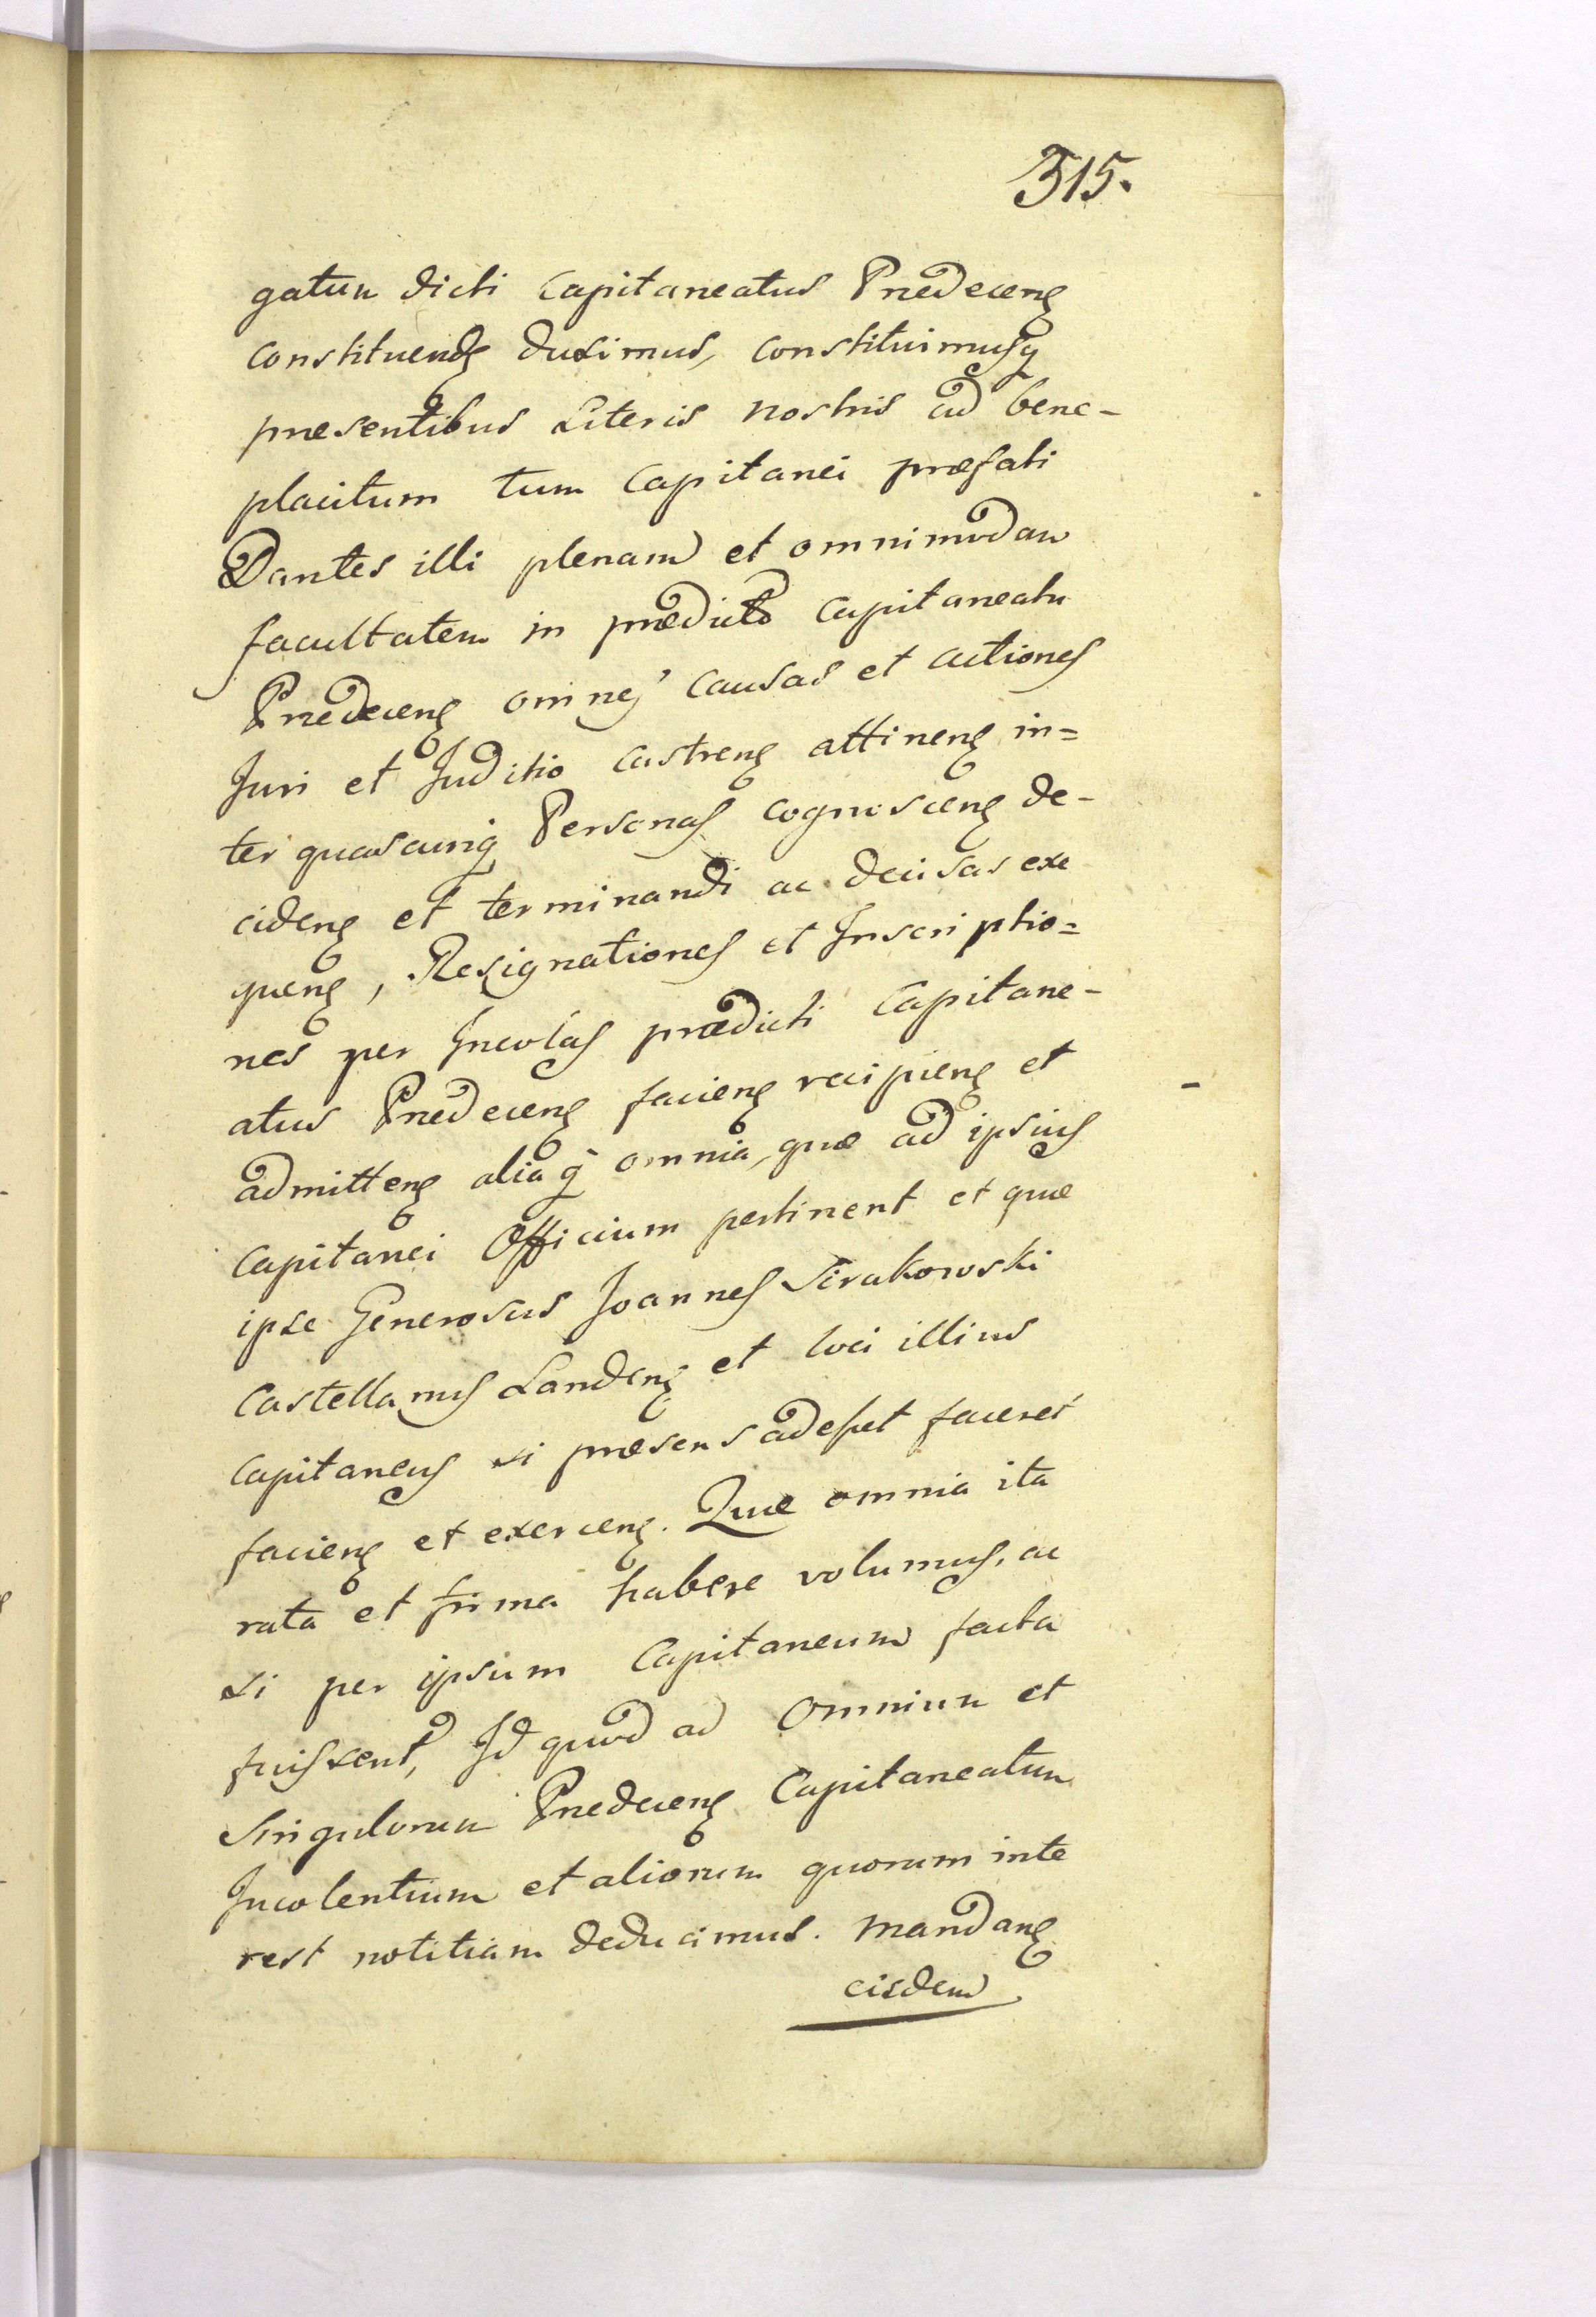 315.
gatum dicti Capitaneatus Prædecenꝭ
constituendꝭ duximus, constituimusq́
præsentibus Literis nostris ad bene-
placitum tum Capitanei præfati
Dantes illi plenam et omnimodam
facultatem in prædicto Capitaneatu
Prædecenꝭ omnes causas et actiones
Juri et Juditio castrenꝭ attinenꝭ in=
ter quascunq́ Personas cognoscenꝭ de-
cidenꝭ et terminandi ac decisas exe
quenꝭ, Resignationes et Inscriptio=
nes per Incolas prædicti Capitane-
atus Prædecenꝭ facienꝭ recipienꝭ et
admittenꝭ aliaq́ omnia, quæ ad ipsius
Capitanei Officium pertinent et quæ
ipse Generosus Joannes Sirakowski
Castellanus Landenꝭ et loci illius
Capitaneus si præsens adesset faceret
facienꝭ et exercenꝭ. Quæ omnia ita
rata et firma habere volumus, ac
si per ipsum Capitaneum facta
fuissent, Id quod ad Omnium et
Singulorum Prædecenꝭ Capitaneatum
Incolentium et aliorum quorum inte
rest notitiam deducimus. Mandanꝭ
eisdem